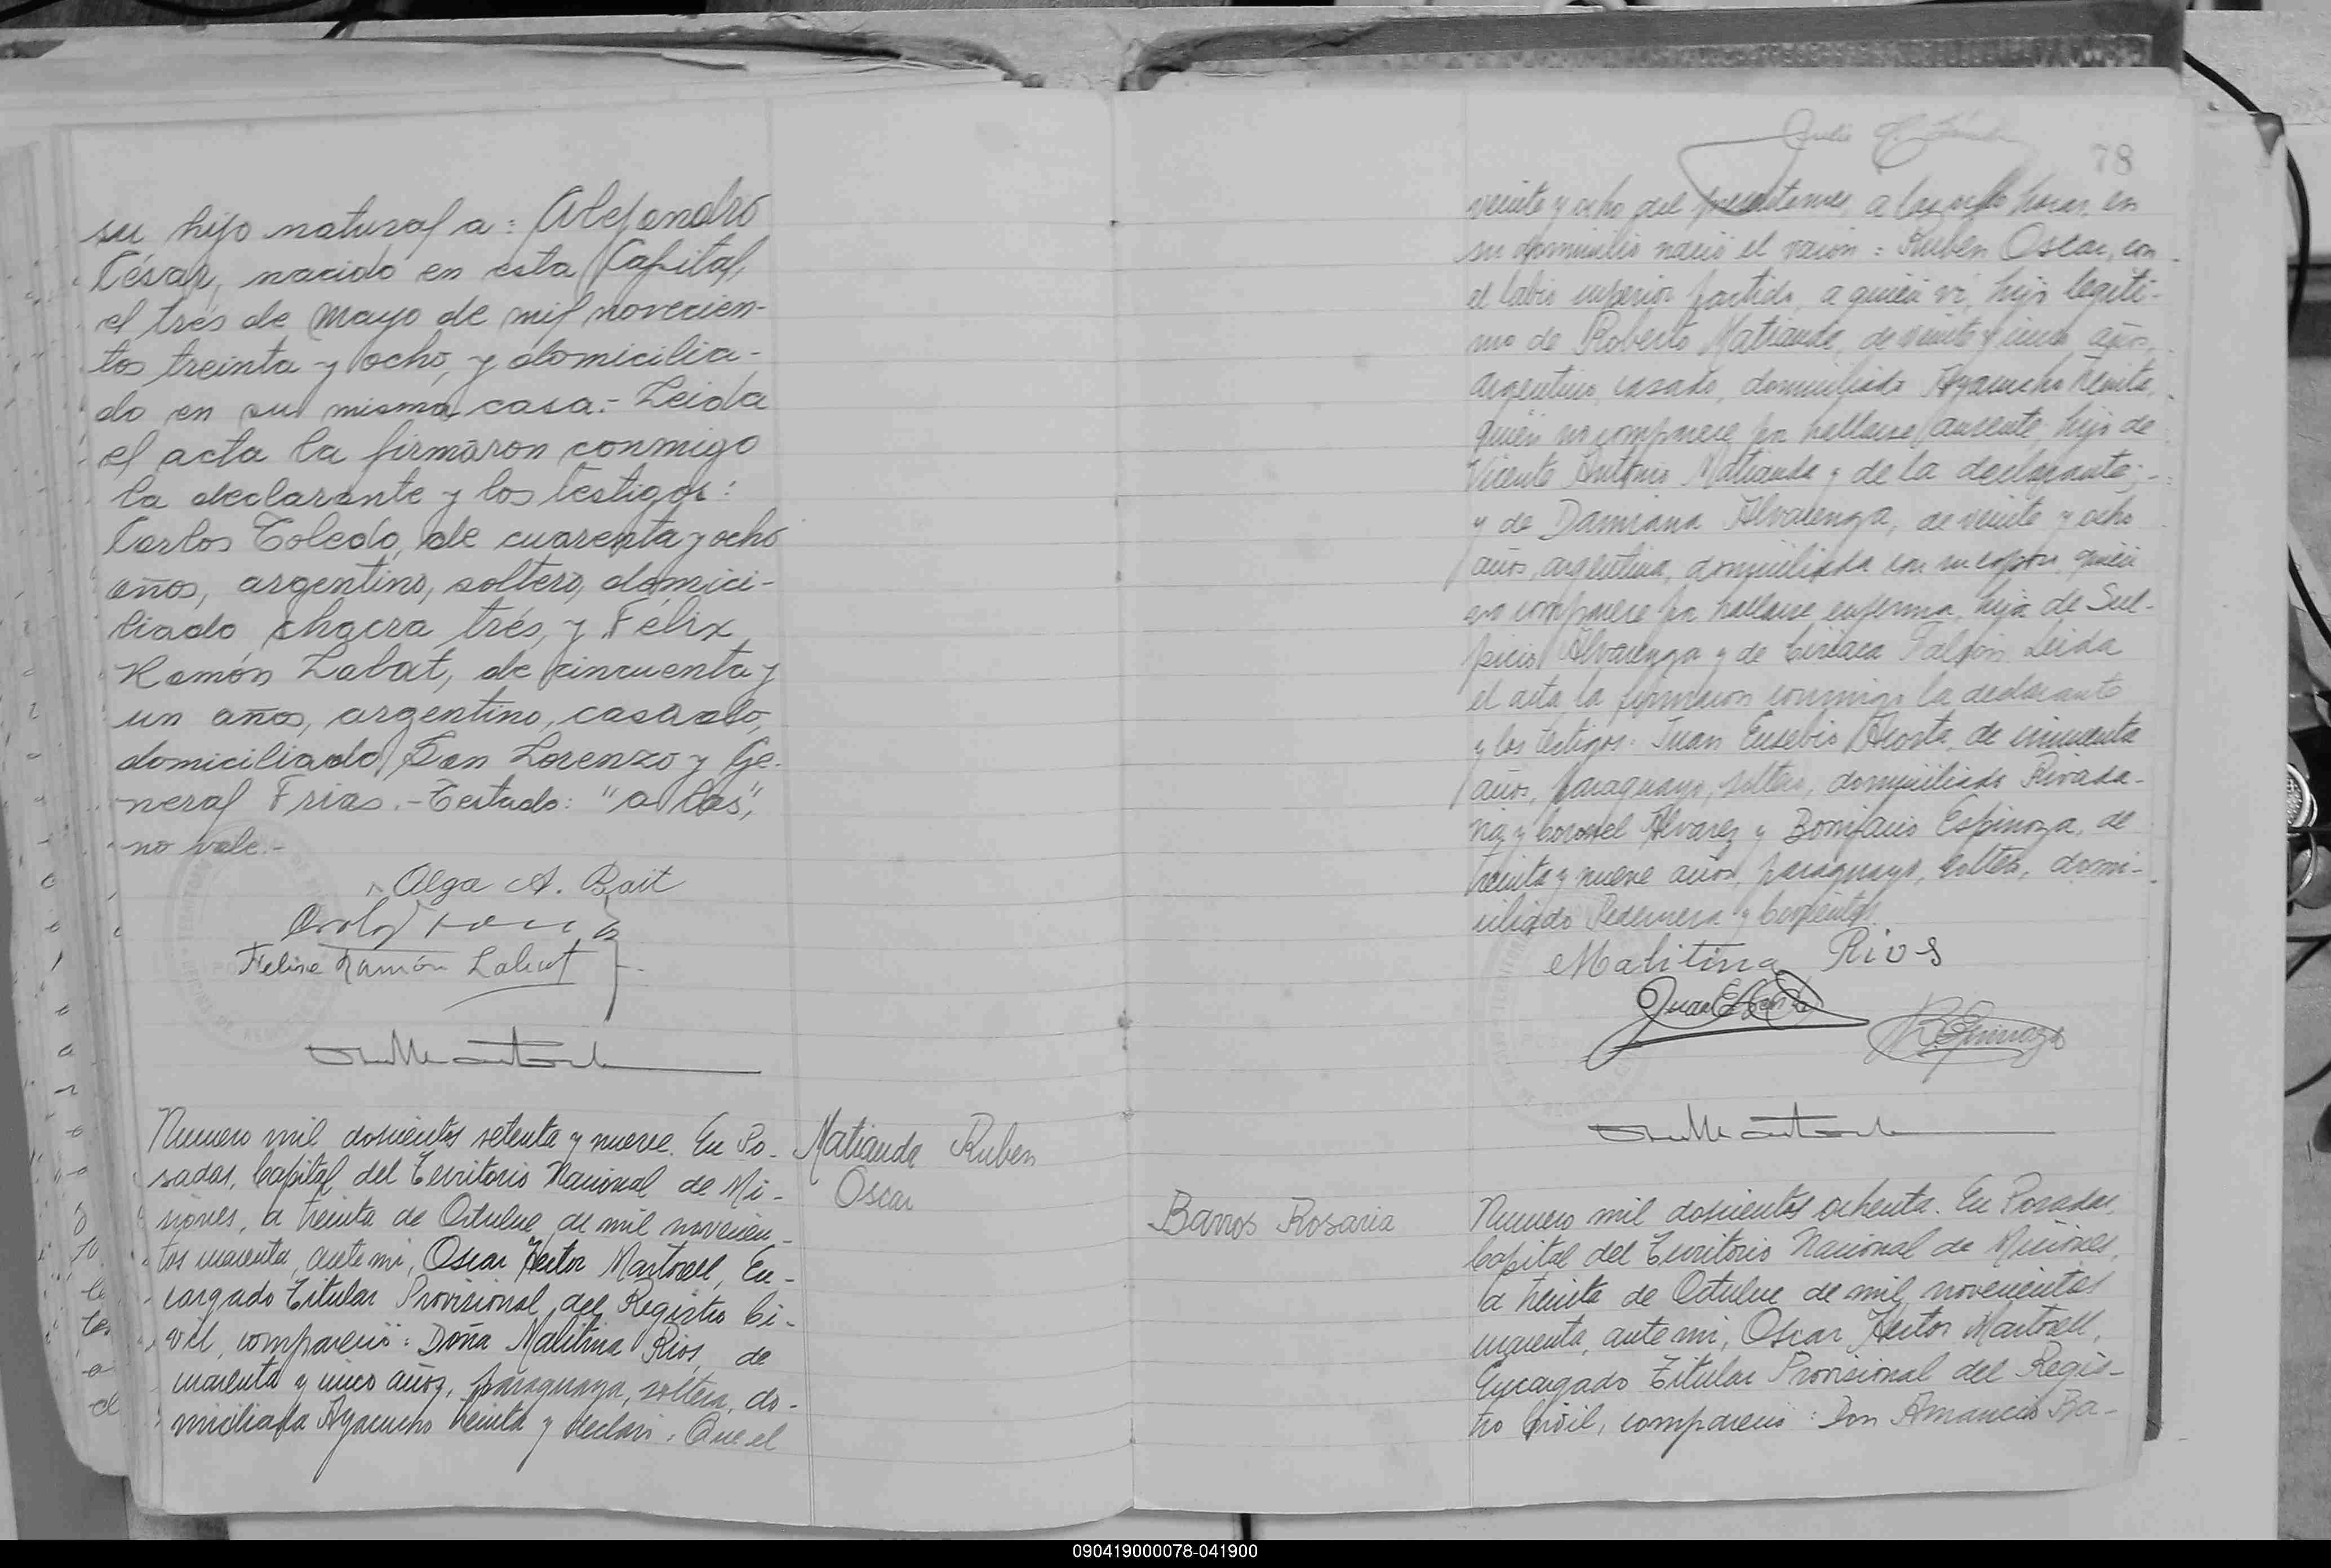 su hijo natural a: Alejandro
César, nacido en esta Capital,
el trés de Mayo de mil novecien-
tos treinta y ocho, y domicilia-
do en su misma casa.- Leida
el acta la firmaron conmigo
la declarante y los testigos:
Carlos Toledo, de cuarenta y ocho
años, argentino, soltero, domici-
liado chacra trés, y Félix
Ramón Labat, de cincuenta y
un años, argentino, casado,
domiciliado San Lorenzo y Ge-
neral Frias.- Testado: "a las",
no vale.-
Olga A. Bait
Felix Ramón Labat
Matiauda Ruben
Oscar
Numero mil doscientos setenta y nueve. En Po-
sadas, Capital del Territorio Nacional de Mi-
siones, a treinta de Octubre de mil novecien-
tos cuarenta, ante mi, Oscar Hector Martorell, En-
cargado Titular Provisional del Registro Ci-
vil, compareció: Doña Malitina Rios, de
cuarenta y cinco años, paraguaya, soltera, do-
miciliada Ayacucho treinta y declaró: Que el
78
veinte y ocho del presente mes, a las ocho horas, en
su domicilio nació el varon: Ruben Oscar, con
el labio superior partido, a quién ví, hijo legiti-
mo de Roberto Matiauda, de veinte y cinco años,
argentino, casado, domiciliado Ayacucho treinta,
quién no comparece por hallarse ausente, hijo de
Vicente Antonio Matiauda y de la declarante;-
y de Damiana Alvarenga, de veinte y ocho
años, argentina, domiciliada con su esposo, quién
no comparece por hallarse enferma, hija de Sul-
picio Alvarenga y de Ciriaca Falcón. Leida
el acta la firmaron conmigo la declarante
y los testigos: Juan Eusebio Acosta, de cincuenta
años, paraguayo, soltero, domiciliado Rivada-
via y Coronel Alvarez y Bonifacio Espinoza, de
treinta y nueve años, paraguayo, soltero, domi-
ciliado Pedernera y Corrientes.
Malitina Rios
Juan E Acosta
B. Espinoza
Barros Rosaria
Numero mil doscientos ochenta. En Posadas,
Capital del Territorio Nacional de Misiones,
a treinta de Octubre de mil novecientos
cuarenta, ante mi, Oscar Hector Martorell,
Encargado Titular Provisional del Regis-
tro Civil, compareció: Don Amancio Ba-
090419000078-041900